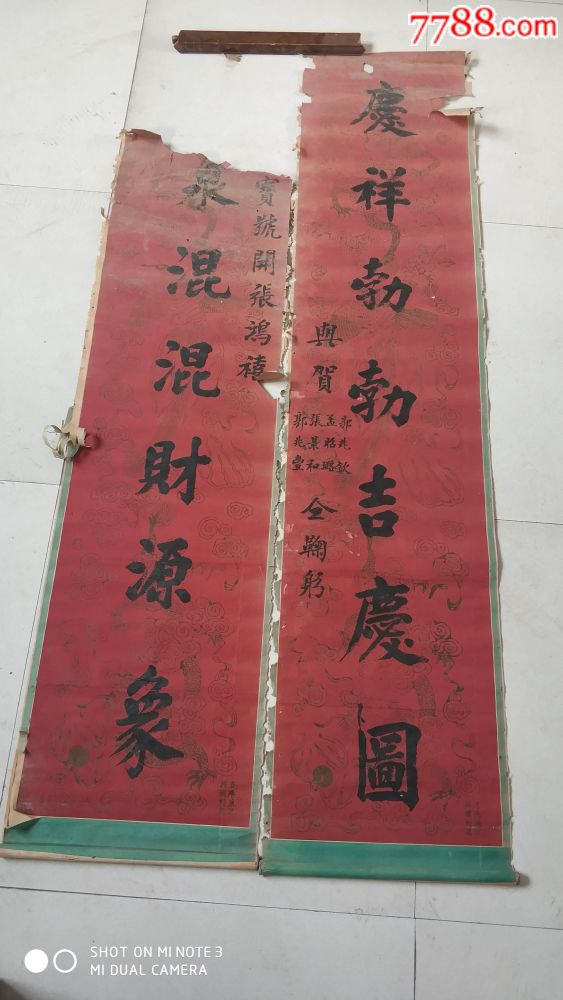 7788.com
慶祥勃勃吉慶圖
與賀
郭兆欽
孟昭璐
張景和
郭兆豐
仝鞠躬
寳號開張鴻禧
泉混混財源象
SHOT ON MI NOTE 3
MI DUAL CAMERA